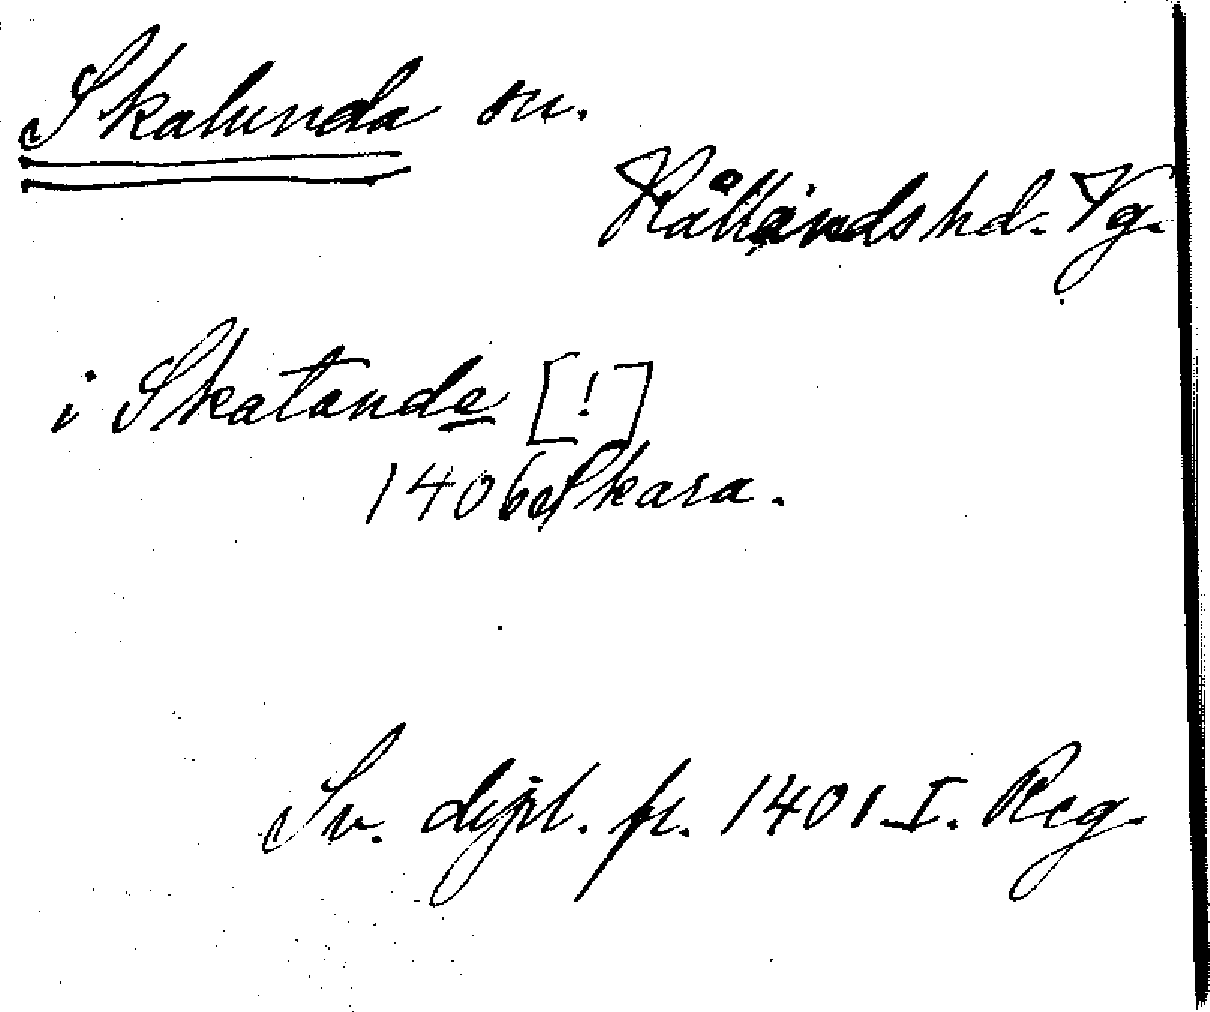 Skalunda sn.
Kållands hd. Vg.
i Skatande [!]
1406 Skara.
Sv. dipl. fr. 1401. I. Reg.